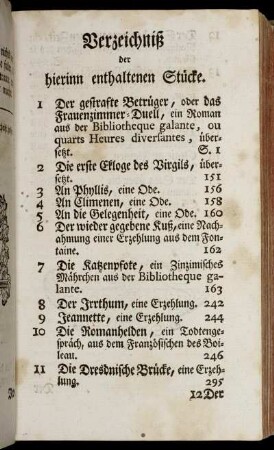 Verzeichniß
der
hierinn enthaltenen Stücke.
1 Der gestrafte Betrüger, oder das
Frauenzimmer-Duell, ein Roman
aus der Bibliotheque galante, ou
quarts Heures diversantes, über-
setzt. S. 1
2 Die erste Ekloge des Virgils, über-
setzt. 151
3 An Phyllis, eine Ode. 156
4 An Climenen, eine Ode. 158
5 An die Gelegenheit, eine Ode. 160
6 Der wieder gegebene Kuß, eine Nach-
ahmung einer Erzehlung aus dem Fon-
taine. 162
7 Die Katzenpfote, ein Zinzimisches
Mährchen aus der Bibliotheque ga-
lante. 163
8 Der Jrrthum, eine Erzehlung. 242
9 Jeannette, eine Erzehlung. 244
10 Die Romanhelden, ein Todtenge-
spräch, aus dem Französischen des Boi-
leau. 246
11 Die Dresdnische Brücke, eine Erzeh-
lung. 295
12 Der